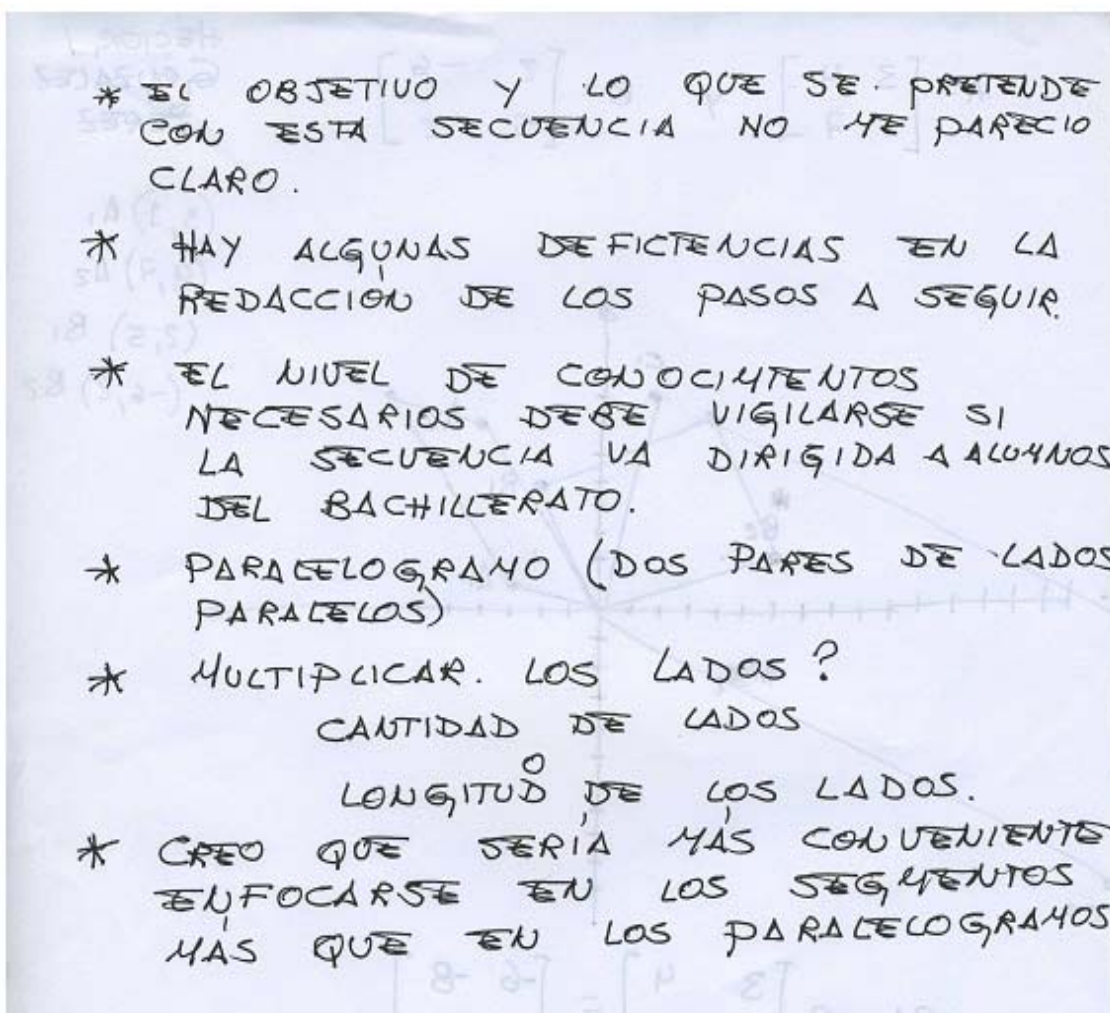 * EL OBJETIVO Y LO QUE SE PRETENDE
CON ESTA SECUENCIA NO ME PARECIO
CLARO.
* HAY ALGUNAS DEFICIENCIAS EN LA
REDACCIÓN DE LOS PASOS A SEGUIR.
* EL NIVEL DE CONOCIMIENTOS
NECESARIOS DEBE VIGILARSE SI
LA SECUENCIA VA DIRIGIDA A ALUMNOS
DEL BACHILLERATO.
* PARALELOGRAMO (DOS PARES DE LADOS
PARALELOS)
* MULTIPLICAR. LOS LADOS?
CANTIDAD DE LADOS
O
LONGITUD DE LOS LADOS.
* CREO QUE SERÍA MÁS CONVENIENTE
ENFOCARSE EN LOS SEGMENTOS
MÁS QUE EN LOS PARALELOGRAMOS